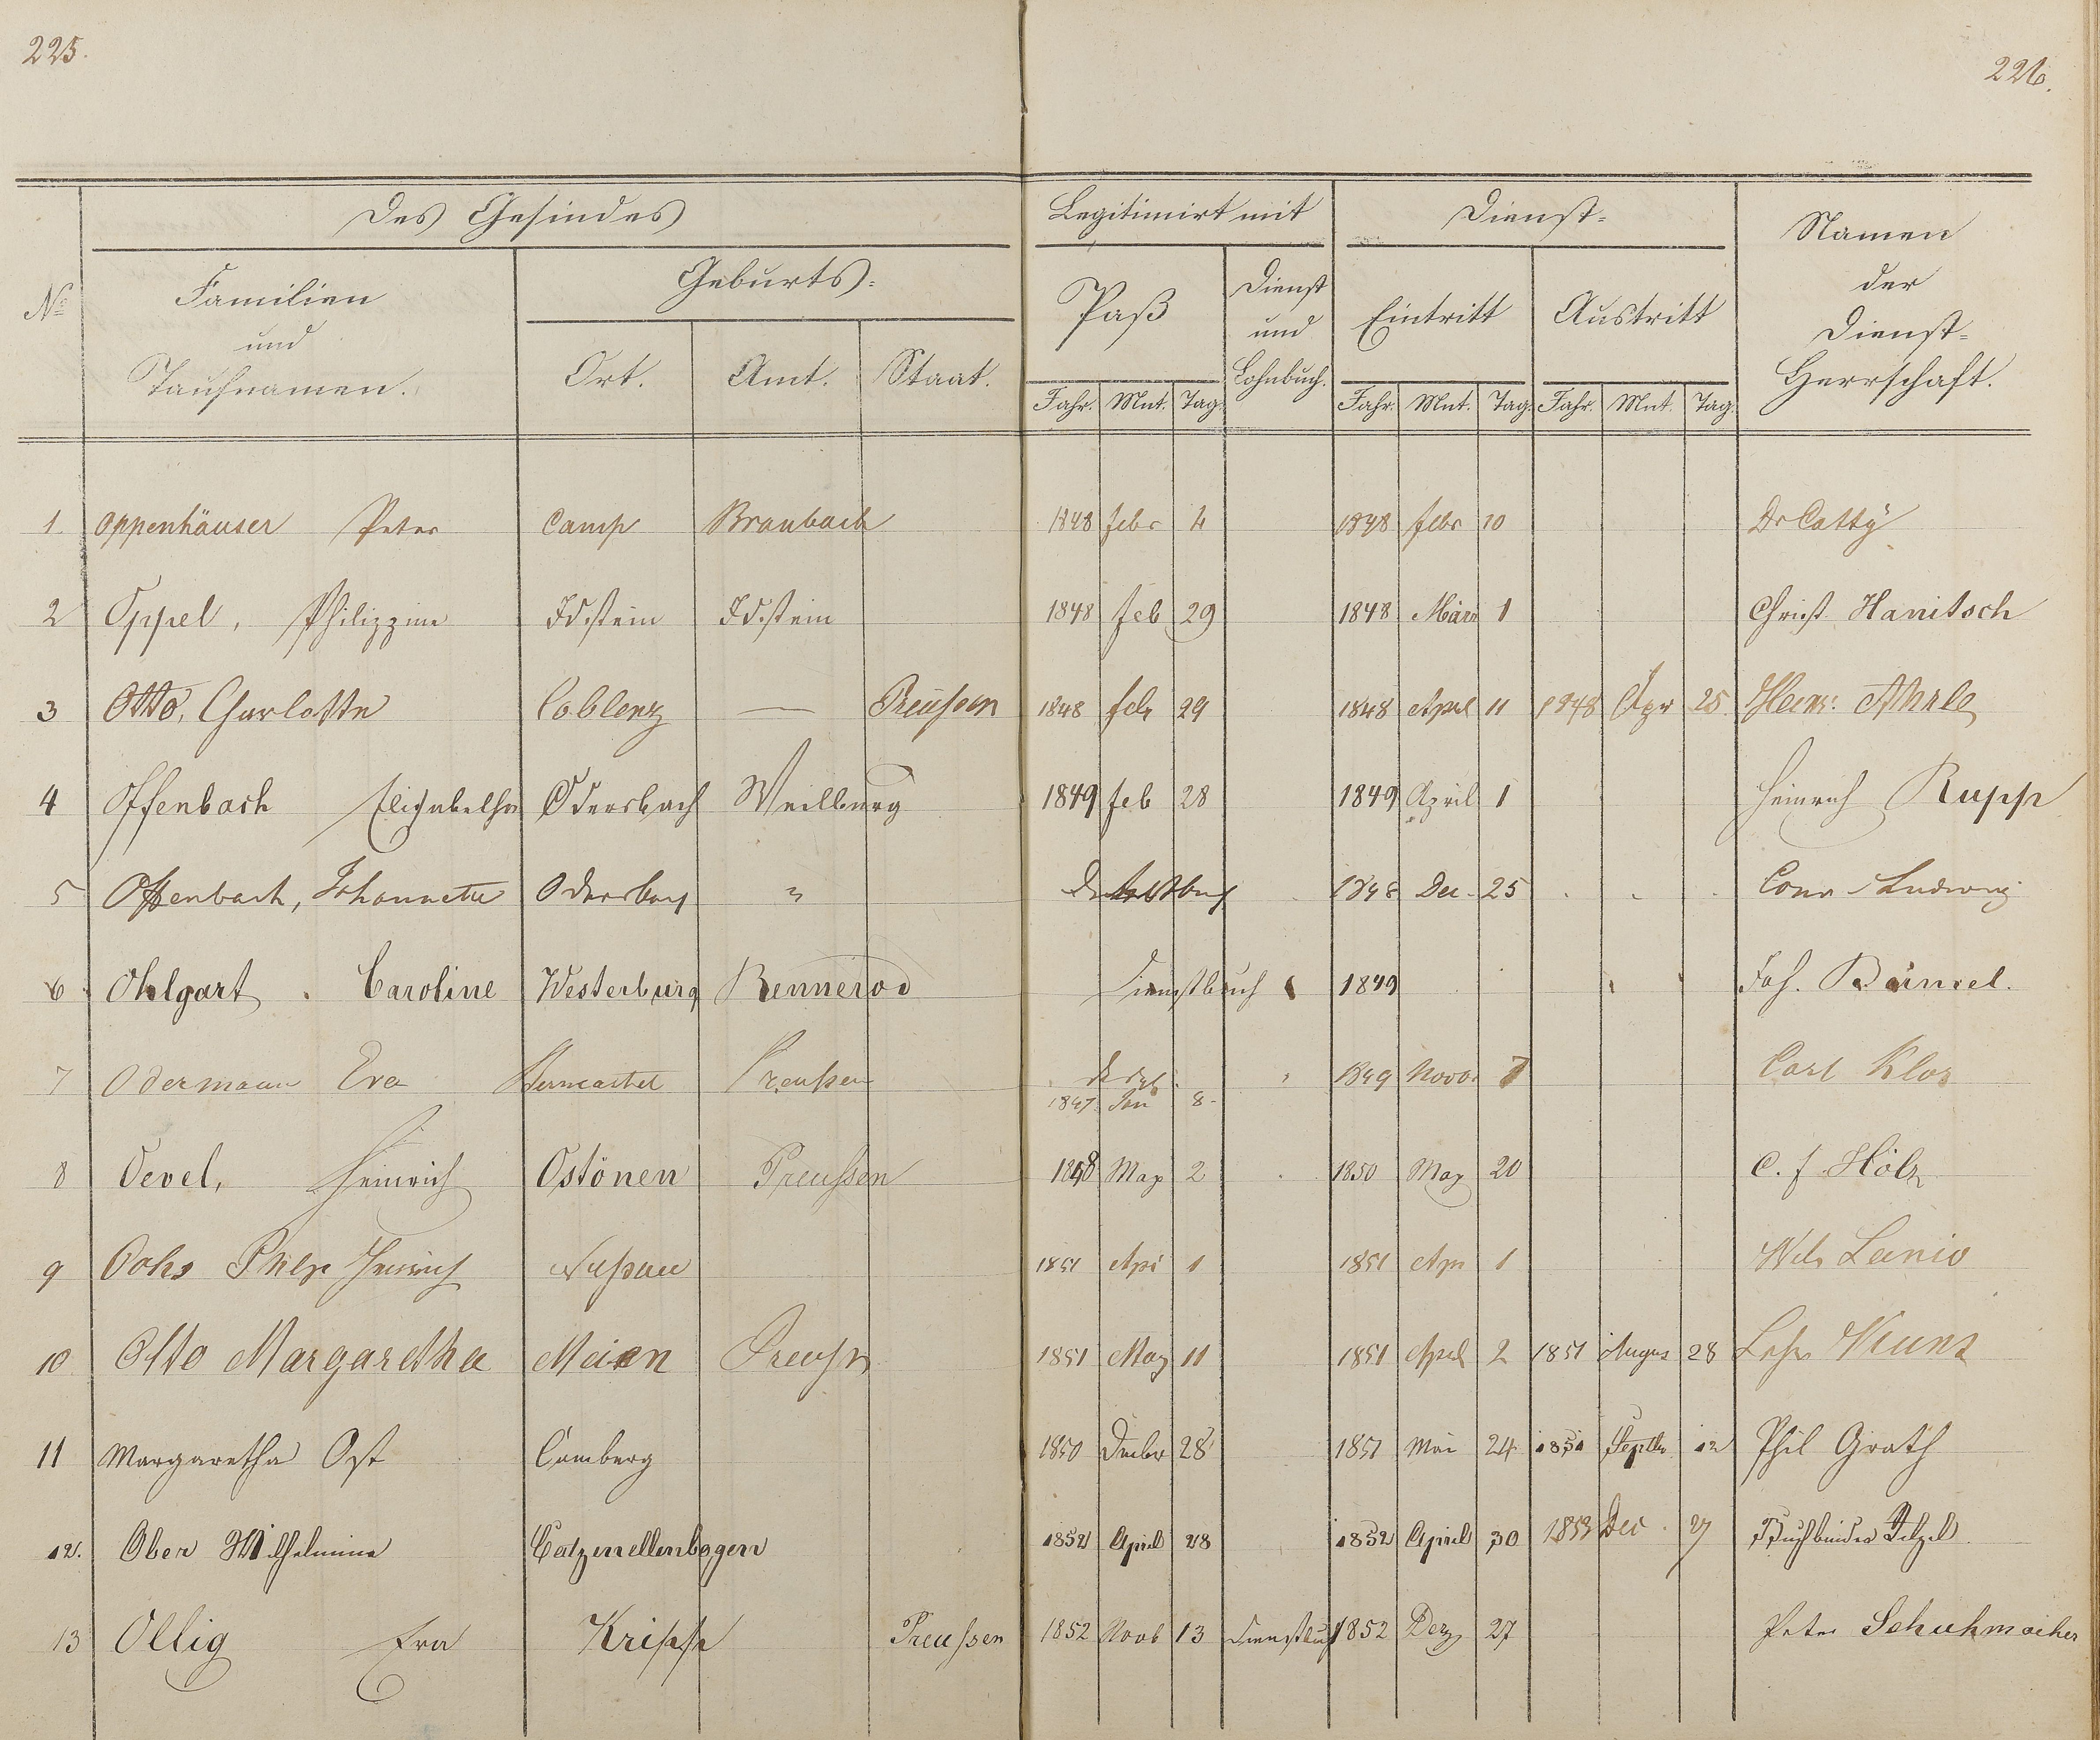 225.
226.
Des Gesindes
Legitimirt mit
Dienst-
Namen der Dienst-Herrschaft.
No
Familien und Taufnamen.
Geburts-
Paß
Dienst und Lohnbuch.
Eintritt
Austritt
Ort. Amt. Staat.
Jahr. Mnt. Tag. Jahr. Mnt. Tag. Jahr. Mnt. Tag.
1 Oppenhäuser Peter Camp Braubach 1848 febr 4 1848 febr 10 Dr Catty
2 Oppel, Philippine Idstein Idstein 1848 feb 29 1848 März 1 Christ. Hanitsch
3 Otto, Charlotte Coblenz — Preußen 1848 feb 29 1848 April 11 1848 Apr 25
4 Offenbach Elisabetha Odersbach Weilburg 1849 feb 28 1849 April 1 Heinrich Rupp
5 Offenbach, Johannette Odersbach " 1848 Dec 25 Conr Ludwig
6 Ohlgart Caroline Westerburg Rennerod Dienstbuch 1849 Joh.
7 Odermann Eva Berncastel Preußen 1849 Novb. 7 Carl Klos
1847 Jan 8
8 Oevel, Heinrich Ostönen Preussen 1848 May 2 1850 May 20 C. f. Hölz
9 Ochs Philp Heinrich Nassau 1851 Apr 1 1851 Apr 1
10 Otto Margaretha Preußn 1851 May 11 1851 April 2 1851 Augus 28
11 Margaretha Ost Camberg 1850 Decbr 28 1851 Mai 24 1851 Septbr 12 Phil Grath
12. Ober Wilhelmine Catzenellenbogen 1852 April 28 1852 April 30 1853 Dec 27 Buchbinder
13 Ollig Eva Kripp Preussen 1852 Novb 13 Dienstbuch 1852 Dez 27 Peter Schuhmacher